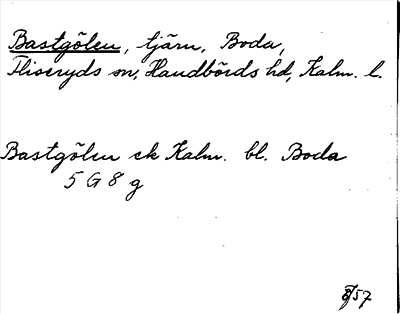 Bastgölen, tjärn, Boda,
Fliseryds sn, Handbörds hd, Kalm. l.
Bastgölen ek Kalm. bl. Boda
5 G 8 g
57